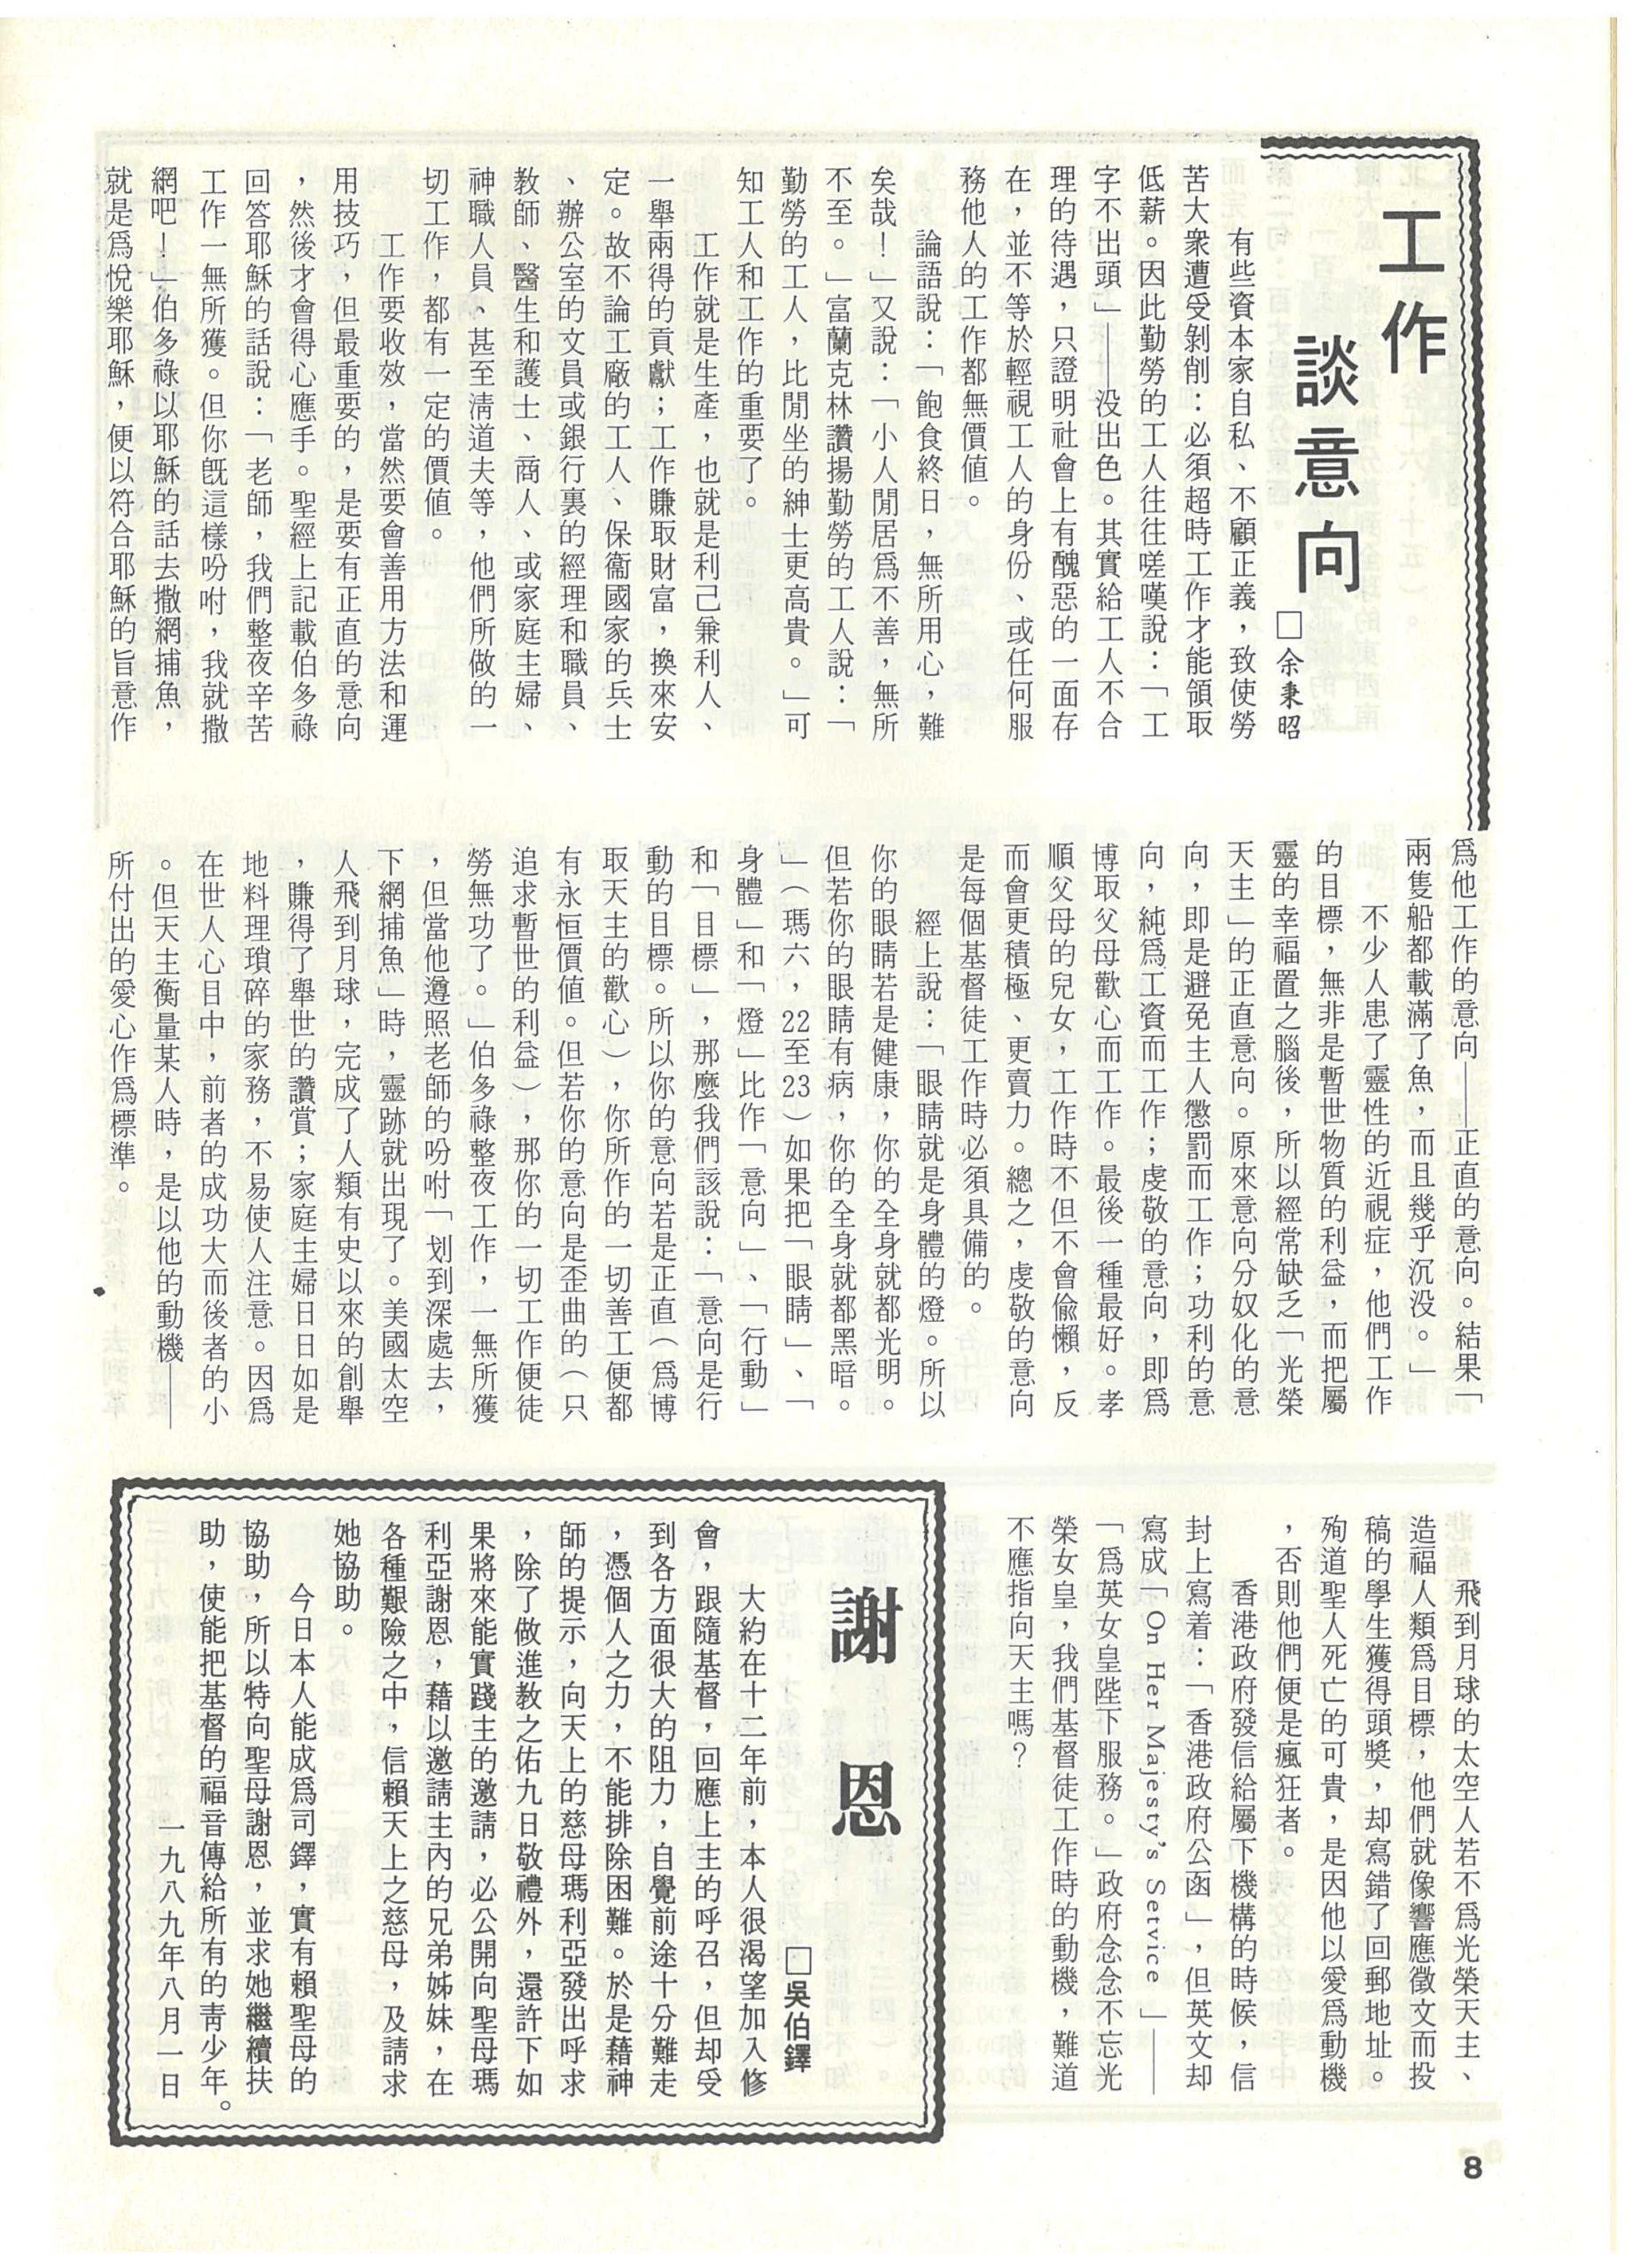 工作
談意向
□余秉昭
有些資本家自私、不顧正義，致使勞
苦大衆遭受剝削：必須超時工作才能領取
低薪。因此勤勞的工人往往嗟嘆說：「工
字不出頭」——没出色。其實給工人不合
理的待遇，只證明社會上有醜惡的一面存
在，並不等於輕視工人的身份、或任何服
務他人的工作都無價值。
論語說：「飽食終日，無所用心，難
矣哉！」又說：「小人閒居爲不善，無所
不至。」富蘭克林讚揚勤勞的工人說：「
勤勞的工人，比閒坐的紳士更高貴。」可
知工人和工作的重要了。
工作就是生產，也就是利己兼利人、
一舉兩得的貢獻；工作賺取財富，換來安
定。故不論工廠的工人、保衞國家的兵士
、辦公室的文員或銀行裏的經理和職員、
教師、醫生和護士、商人、或家庭主婦、
神職人員、甚至淸道夫等，他們所做的一
切工作，都有一定的價値。
工作要收效，當然要會善用方法和運
用技巧，但最重要的，是要有正直的意向
，然後才會得心應手。聖經上記載伯多祿
回答耶穌的話說：「老師，我們整夜辛苦
工作一無所獲。但你旣這樣吩咐，我就撒
網吧！」伯多祿以耶穌的話去撒網捕魚，
就是爲悅樂耶穌，便以符合耶穌的旨意作
爲他工作的意向——正直的意向。結果「
兩隻船都載滿了魚，而且幾乎沉没。」
不少人患了靈性的近視症，他們工作
的目標，無非是暫世物質的利益，而把屬
靈的幸福置之腦後，所以經常缺乏「光榮
天主」的正直意向。原來意向分奴化的意
向，即是避免主人懲罰而工作；功利的意
向，純爲工資而工作；虔敬的意向，即爲
博取父母歡心而工作。最後一種最好。孝
順父母的兒女，工作時不但不會偷懶，反
而會更積極、更賣力。總之，虔敬的意向
是每個基督徒工作時必須具備的。
經上說：「眼睛就是身體的燈。所以
你的眼睛若是健康，你的全身就都光明。
但若你的眼睛有病，你的全身就都黑暗。
」（瑪六，22至23）如果把「眼睛」、「
身體」和「燈」比作「意向」、「行動」
和「目標」，那麼我們該說：「意向是行
動的目標。所以你的意向若是正直（爲博
取天主的歡心），你所作的一切善工便都
有永恒價值。但若你的意向是歪曲的（只
追求暫世的利益），那你的一切工作便徒
勞無功了。」伯多祿整夜工作，一無所獲
，但當他遵照老師的吩咐「划到深處去，
下網捕魚」時，靈跡就出現了。美國太空
人飛到月球，完成了人類有史以來的創舉
，賺得了舉世的讚賞；家庭主婦日日如是
地料理瑣碎的家務，不易使人注意。因爲
在世人心目中，前者的成功大而後者的小
。但天主衡量某人時，是以他的動機——
所付出的愛心作爲標準。
飛到月球的太空人若不爲光榮天主、
造福人類爲目標，他們就像響應徵文而投
稿的學生獲得頭獎，却寫錯了回郵地址。
殉道聖人死亡的可貴，是因他以愛爲動機
，否則他們便是瘋狂者。
香港政府發信給屬下機構的時候，信
封上寫着：「香港政府公函」，但英文却
寫成「On Her Majesty's Setvice」——
「爲英女皇陛下服務。」政府念念不忘光
榮女皇，我們基督徒工作時的動機，難道
不應指向天主嗎？
謝恩
□吳伯鐸
大約在十二年前，本人很渴望加入修
會，跟隨基督，回應上主的呼召，但却受
到各方面很大的阻力，自覺前途十分難走
，憑個人之力，不能排除困難。於是藉神
師的提示，向天上的慈母瑪利亞發出呼求
，除了做進教之佑九日敬禮外，還許下如
果將來能實踐主的邀請，必公開向聖母瑪
利亞謝恩，藉以邀請主內的兄弟姊妹，在
各種艱險之中，信賴天上之慈母，及請求
她協助。
今日本人能成爲司鐸，實有賴聖母的
協助，所以特向聖母謝恩，並求她繼續扶
助，使能把基督的福音傳給所有的靑少年。
一九八九年八月一日
8